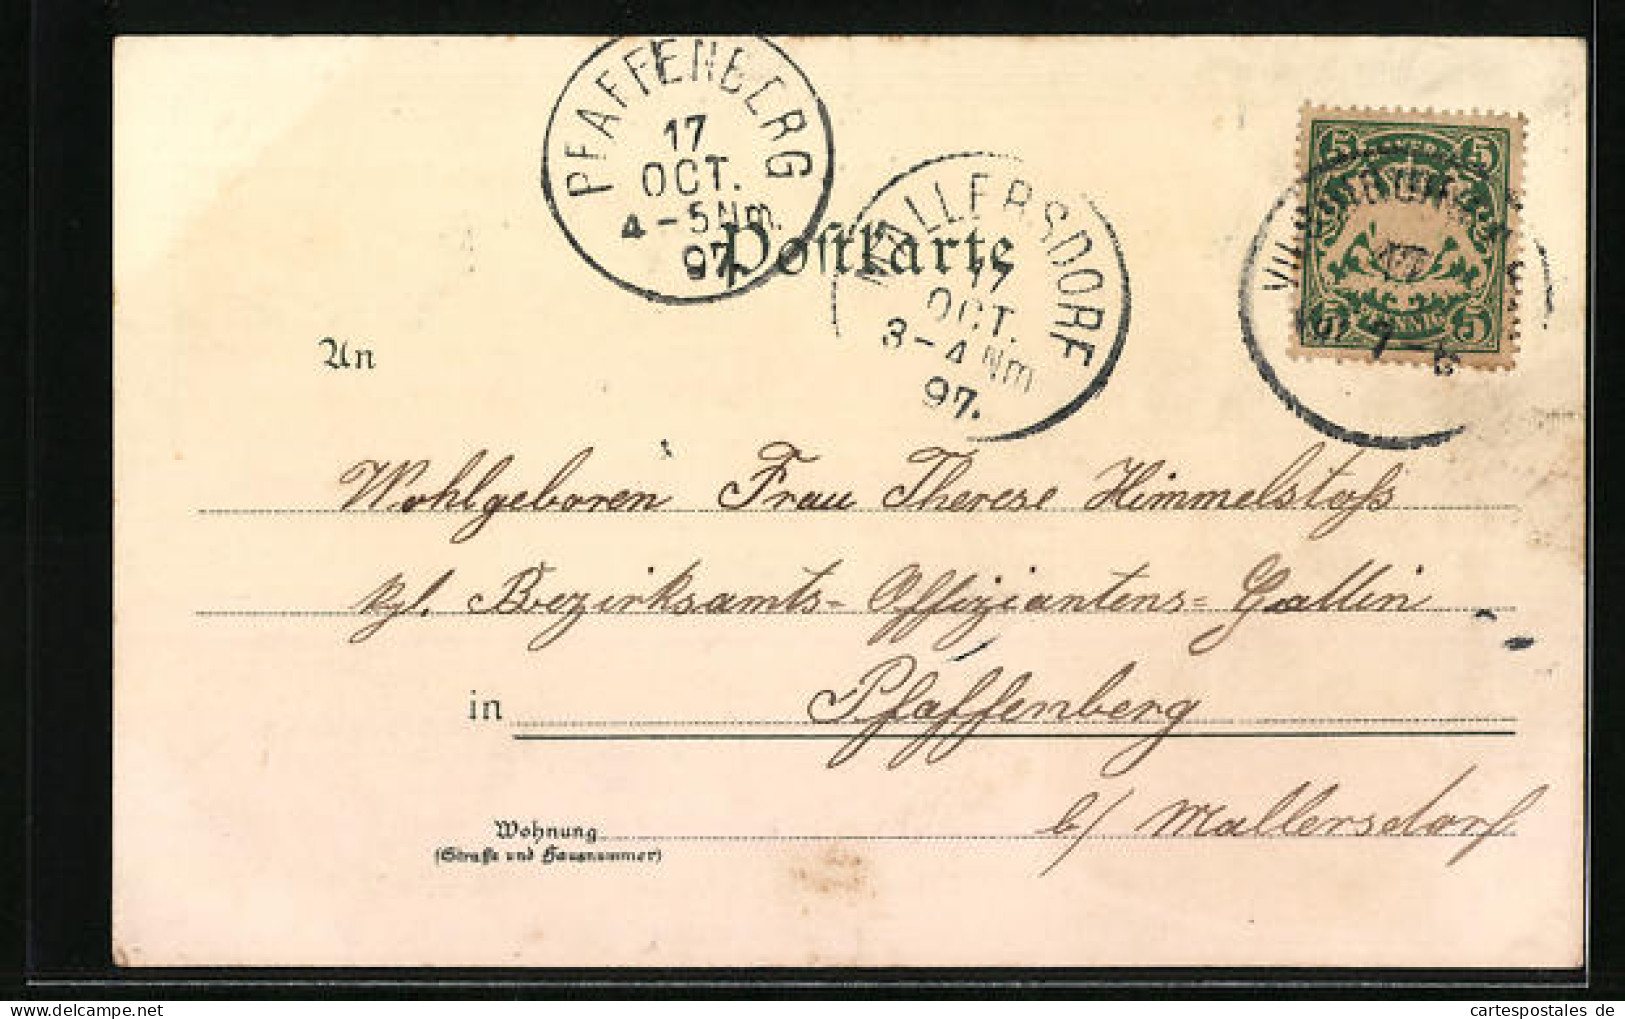 PFAFFENBERG
17
OCT.
4-5 Nm.
97.
Postkarte
MALLERSDORF
17
OCT.
3-4 Nm
97.
5 5
17
PFENNIG
5
7-8
An
Wohlgeboren Frau Therese Himmelstoß
kgl. Bezirksamts= Offiziantens= Gattin
in Pfaffenberg
b/ Mallersdorf.
Wohnung
(Straße und Hausnummer)
cartespostales de